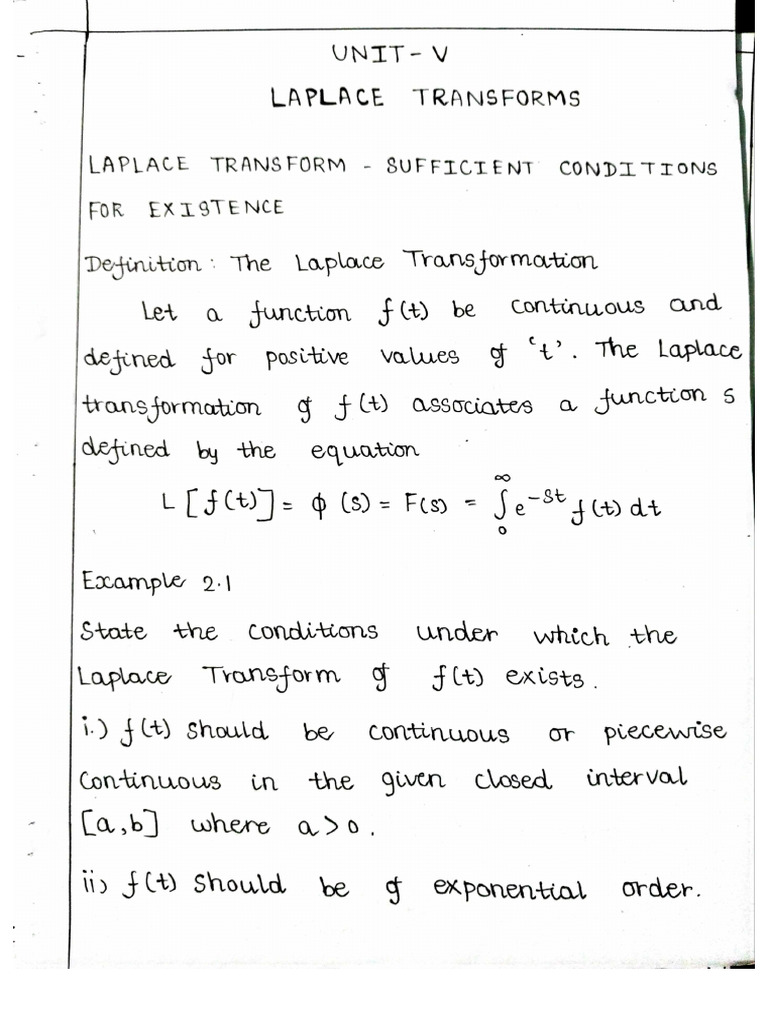 UNIT - V
LAPLACE TRANSFORMS
LAPLACE TRANSFORM - SUFFICIENT CONDITIONS
FOR EXISTENCE
Definition: The Laplace Transformation
Let a function f(t) be continuous and
defined for positive values of 't'. The Laplace
transformation of f(t) associates a function s
defined by the equation
L[f(t)] = φ(s) = F(s) = ∫₀^∞ e^{-st} f(t) dt
Example 2.1
State the conditions under which the
Laplace Transform of f(t) exists.
i.) f(t) should be continuous or piecewise
continuous in the given closed interval
[a,b] where a>0.
ii) f(t) should be of exponential order.